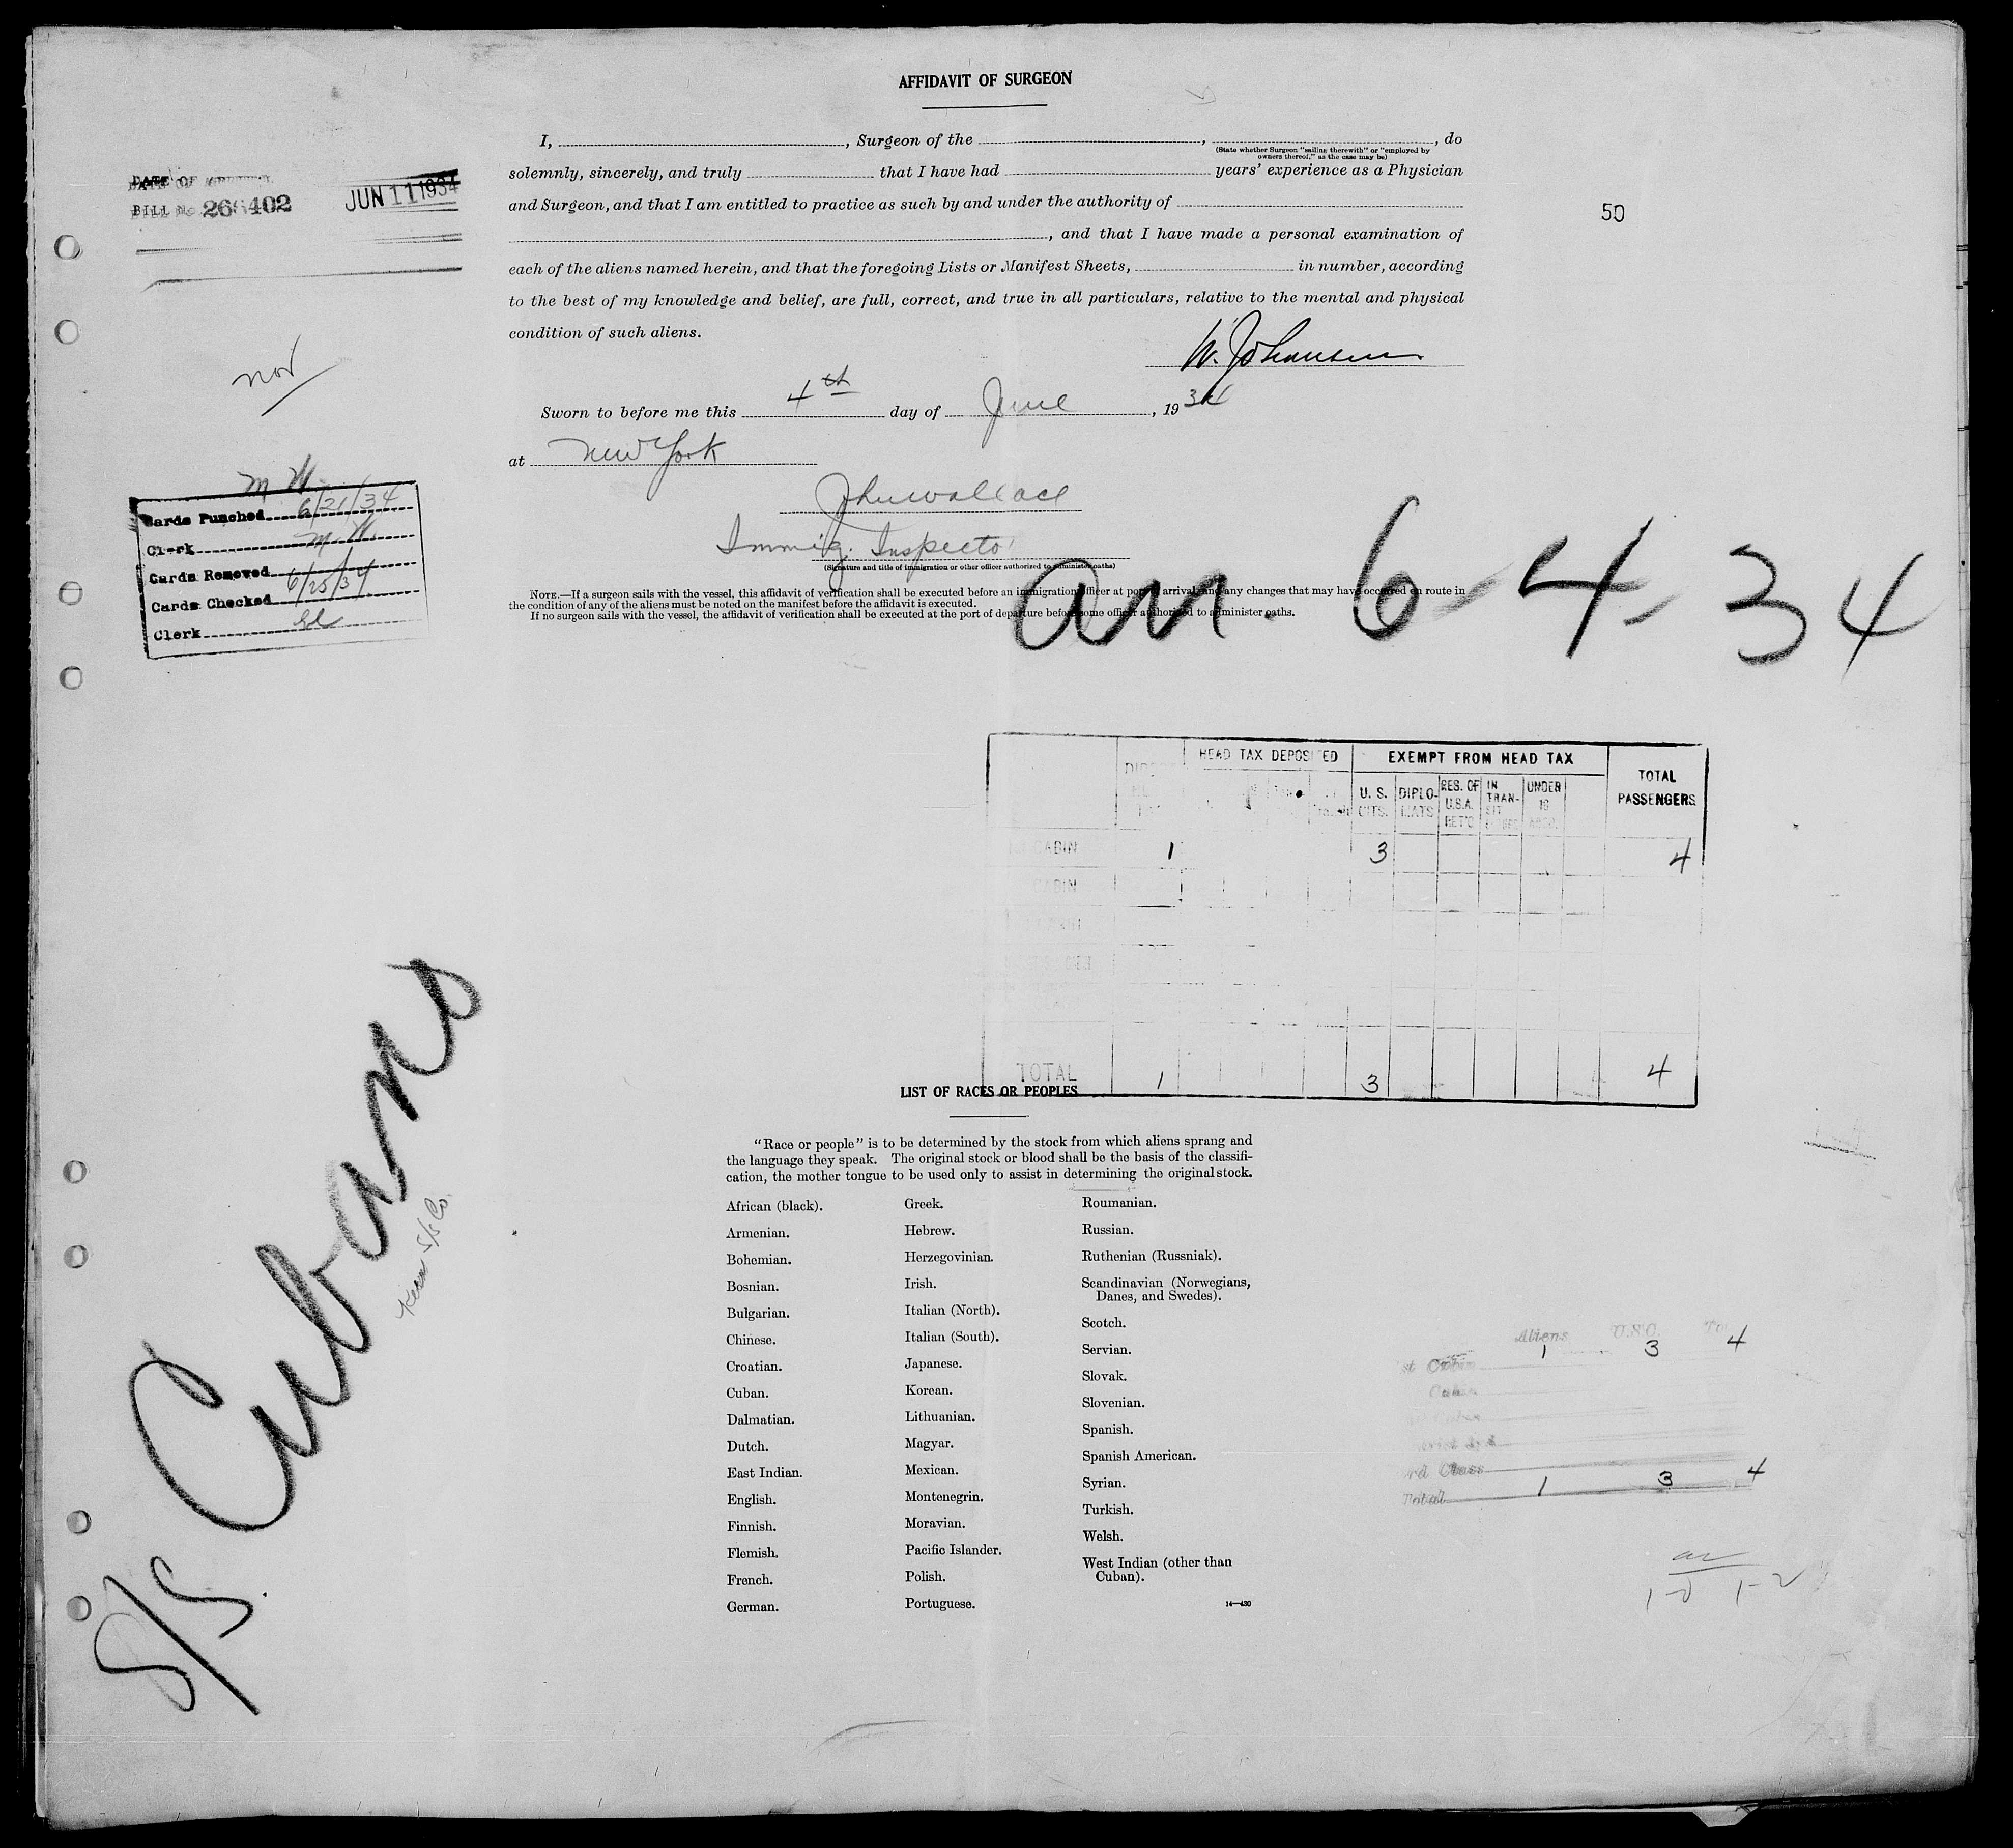 AFFIDAVIT OF SURGEON
I, , Surgeon of the , , do
(State whether Surgeon "sailing therewith" or "employed by
owners thereof," as the case may be)
solemnly, sincerely, and truly that I have had years' experience as a Physician
and Surgeon, and that I am entitled to practice as such by and under the authority of
, and that I have made a personal examination of
each of the aliens named herein, and that the foregoing Lists or Manifest Sheets, in number, according
to the best of my knowledge and belief, are full, correct, and true in all particulars, relative to the mental and physical
condition of such aliens.
W. Johansen
Sworn to before me this 4th day of June, 1934
at New York
Jhu Wallace
Immig. Inspector
(Signature and title of immigration or other officer authorized to administer oaths)
NOTE.—If a surgeon sails with the vessel, this affidavit of verification shall be executed before an immigration officer at port of arrival, and any changes that may have occurred en route in
the condition of any of the aliens must be noted on the manifest before the affidavit is executed.
If no surgeon sails with the vessel, the affidavit of verification shall be executed at the port of departure before some officer authorized to administer oaths.
DATE OF
BILL No. 402
JUN 11 1934
50
nor
M W.
Cards Punched 6/21/34
Clerk M.W.
Cards Removed
Cards Checked 6/25/34
Clerk
arr. 6-4-34
HEAD TAX DEPOSITED
EXEMPT FROM HEAD TAX
TOTAL
PASSENGERS
U. S.
CITS.
DIPLO-
MATS
RES. OF
U.S.A.
RET'G
IN
TRAN-
SIT
UNDER
16
CABIN 1 3 4
CABIN
TOTAL 1 3 4
S/S. Cubano
Kerr S/S Co.
LIST OF RACES OR PEOPLES
"Race or people" is to be determined by the stock from which aliens sprang and
the language they speak. The original stock or blood shall be the basis of the classifi-
cation, the mother tongue to be used only to assist in determining the original stock.
African (black).
Armenian.
Bohemian.
Bosnian.
Bulgarian.
Chinese.
Croatian.
Cuban.
Dalmatian.
Dutch.
East Indian.
English.
Finnish.
Flemish.
French.
German.
Greek.
Hebrew.
Herzegovinian.
Irish.
Italian (North).
Italian (South).
Japanese.
Korean.
Lithuanian.
Magyar.
Mexican.
Montenegrin.
Moravian.
Pacific Islander.
Polish.
Portuguese.
Roumanian.
Russian.
Ruthenian (Russniak).
Scandinavian (Norwegians,
Danes, and Swedes).
Scotch.
Servian.
Slovak.
Slovenian.
Spanish.
Spanish American.
Syrian.
Turkish.
Welsh.
West Indian (other than
Cuban).
14—430
Aliens U.S.C.
1 3 4
Class
Total 1 3 4